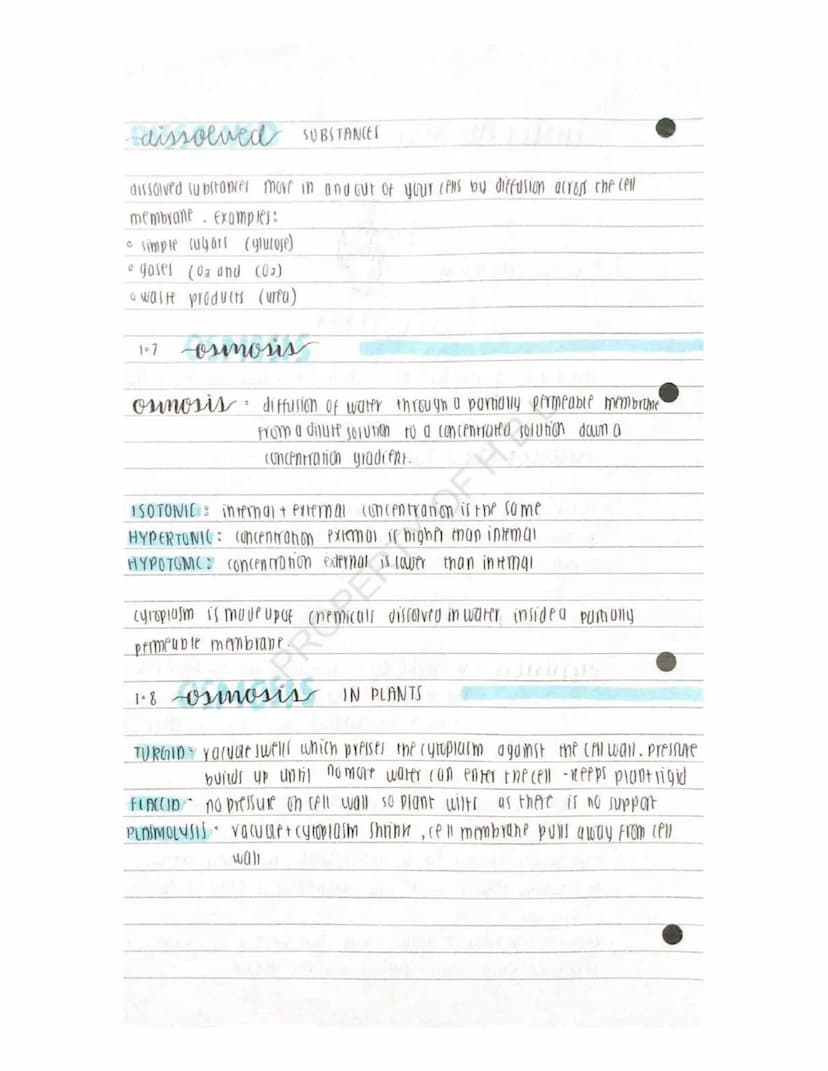 dissolved SUBSTANCES
dissolved substances move in and out of your cells by diffusion across the cell
membrane. Examples:
◦ simple sugars (glucose)
◦ gases (O₂ and CO₂)
◦ waste products (urea)
1.7 osmosis
osmosis: diffusion of water through a partially permeable membrane
from a dilute solution to a concentrated solution down a
concentration gradient.
ISOTONIC: internal + external concentration is the same
HYPERTONIC: concentration external is higher than internal
HYPOTONIC: concentration external is lower than internal
cytoplasm is made up of chemicals dissolved in water inside a partially
permeable membrane.
1.8 osmosis IN PLANTS
TURGID- vacuole swells which presses the cytoplasm against the cell wall. Pressure
builds up until no more water can enter the cell - keeps plant rigid
FLACCID- no pressure on cell wall so plant wilts as there is no support
PLASMOLYSIS- vacuole + cytoplasm shrink, cell membrane pulls away from cell
wall
PROPERTY OF H.B.L